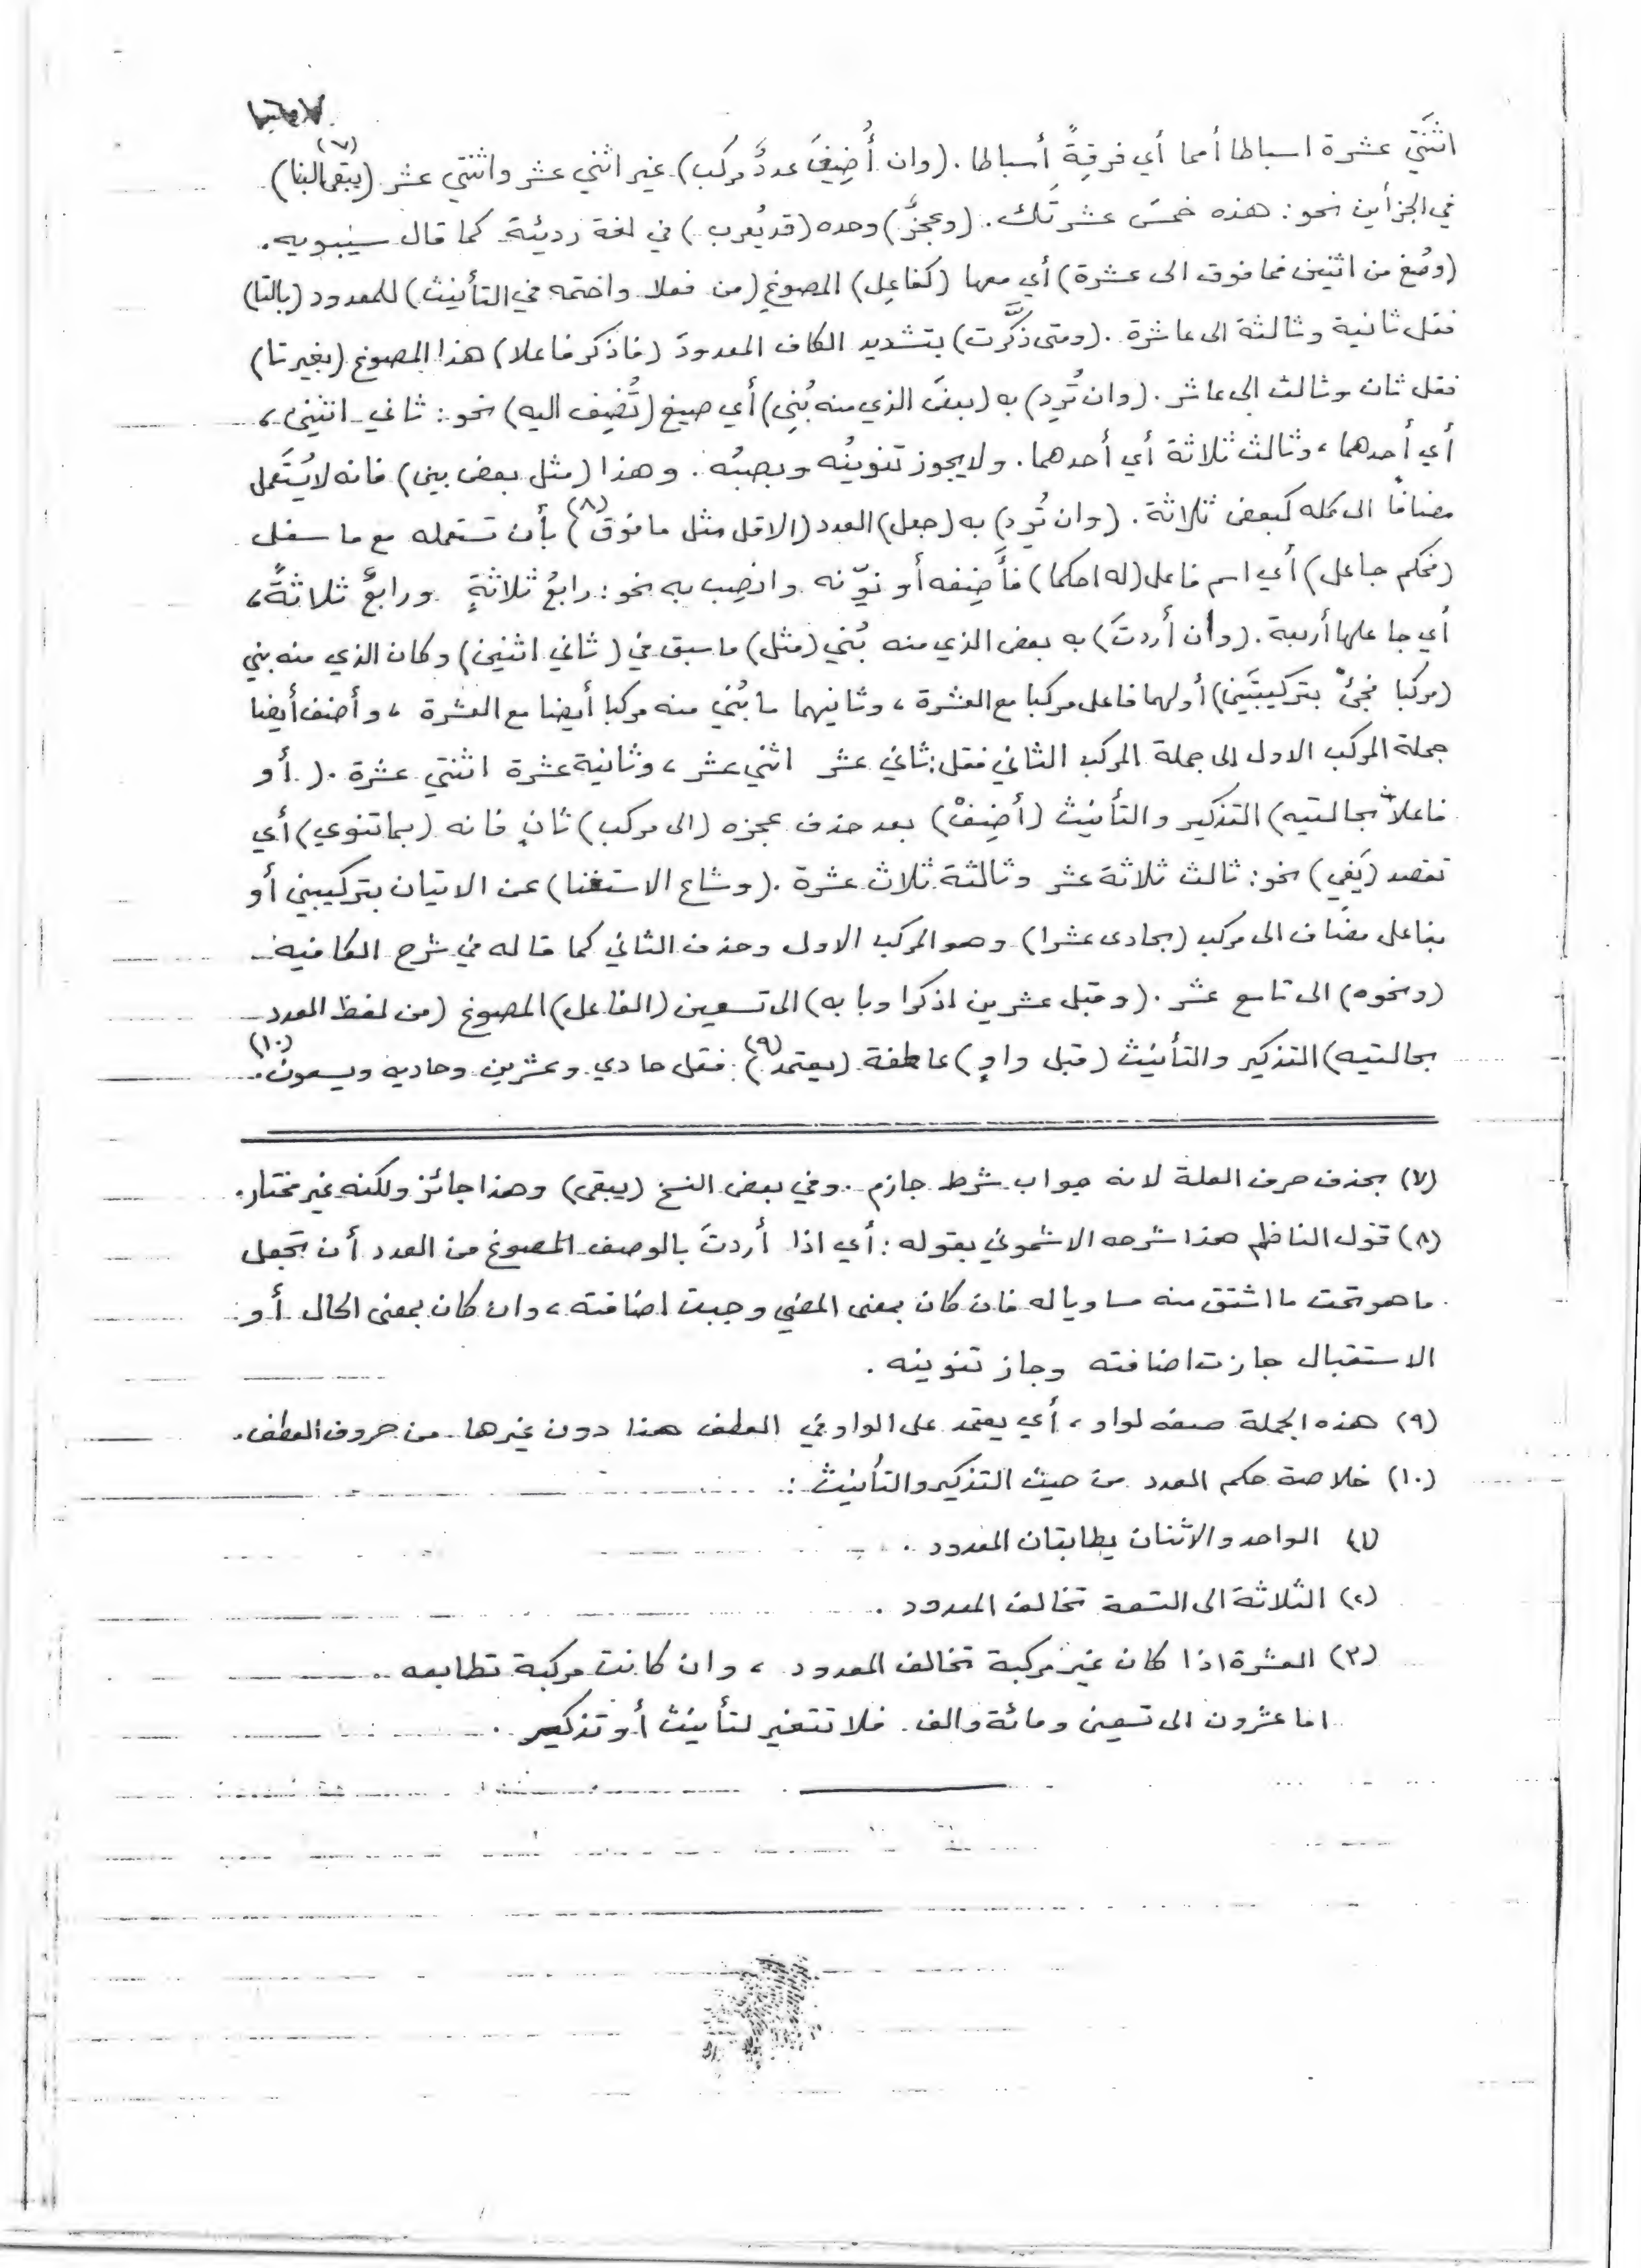 اثنَتَي عشرة اسباطا أمما أي فرقةً أسباطا . (وان أُضِيفَ عددٌ مركب) غير اثني عشر واثنتي عشر (يبقَ البنا) (٧)
في الجزأين نحو : هذه خمسَ عشرتَك . (وعجزٌ) وحده (قد يُعرب) في لغة رديئة كما قال سيبويه .
(وصُغ من اثنين فما فوق الى عشرة) أي معها (كفاعِل) المصوغ (من فعلا واختمه في التأنيث) للمعدود (بالتا)
فقل ثانية وثالثة الى عاشرة . (ومتى ذكَّرت) بتشديد الكاف المعدودَ (فاذكر فاعلا) هذا المصوغ (بغير تا)
فقل ثان وثالث الى عاشر . (وان تُرِد) به (بعضَ الذي منه بُنِي) أي صيغ (تُضِف اليه) نحو : ثاني اثنين ،
أي أحدهما ، وثالث ثلاثة أي أحدهما . ولا يجوز تنوينُه ونصبُه . وهذا (مثل بعض بين) فانه لا يُستَعمل
مضافا الى كله كبعض ثلاثة . (وان تُرِد) به (جعل) العدد (الاقل مثل ما فوقَ) (٨) بأن تستعمله مع ما سفل
(فحكم جاعل) أي اسم فاعل (له احكما) فأَضِفه أو نوِّنه وانصِب به نحو : رابعُ ثلاثةٍ ورابعٌ ثلاثةً ،
أي جاعلها أربعة . (وان أردتَ) به بعض الذي منه بُني (مثل) ما سبق في (ثاني اثنين) وكان الذي منه بني
(مركبا فجئْ بتركيبَين) أولهما فاعل مركبا مع العشرة ، وثانيهما ما بُني منه مركبا أيضا مع العشرة ، وأضف أيضا
جملة المركب الاول الى جملة المركب الثاني فقل : ثاني عشر اثني عشر ، وثانية عشرة اثنتي عشرة . (أو
فاعلاً بحالتيه) التذكير والتأنيث (أضِفْ) بعد حذف عجزه (الى مركب) ثانٍ فانه (بما تنوي) أي
تقصد (يَفي) نحو : ثالث ثلاثة عشر وثالثة ثلاث عشرة . (وشاع الاستغنا) عن الاتيان بتركيبين أو
بفاعل مضاف الى مركب (بحادى عشرا) وهو المركب الاول وحذف الثاني كما قاله في شرح الكافية
(ونحوه) الى تاسع عشر . (وقبل عشرين اذكرا وبابه) الى تسعين (الفاعل) المصوغ (من لفظ العدد
بحالتيه) التذكير والتأنيث (قبل واوٍ) عاطفة (يعتمد) (٩) فقل حادي وعشرين وحاديه وتسعون . (١٠)
(٧) بحذف حرف العلة لانه جواب شرط جازم . وفي بعض النسخ (يبقى) وهذا جائز ولكنه غير مختار .
(٨) قول الناظم هذا شرحه الاشموني بقوله : أي اذا أردتَ بالوصف المصوغ من العدد أن تجعل
ما هو تحت ما اشتق منه مساويا له فان كان بمعنى المضي وجبت اضافته ، وان كان بمعنى الحال أو
الاستقبال جازت اضافته وجاز تنوينه .
(٩) هذه الجملة صفه لواو ، أي يعتمد على الواو في العطف هنا دون غيرها من حروف العطف .
(١٠) خلاصة حكم العدد من حيث التذكير والتأنيث :
(١) الواحد والاثنان يطابقان المعدود .
(٢) الثلاثة الى التسعة تخالف المعدود .
(٣) العشرة اذا كان غير مركبة تخالف المعدود ، وان كانت مركبة تطابعه .
اما عشرون الى تسعين ومائة والف . فلا تتغير لتأنيث أو تذكير .